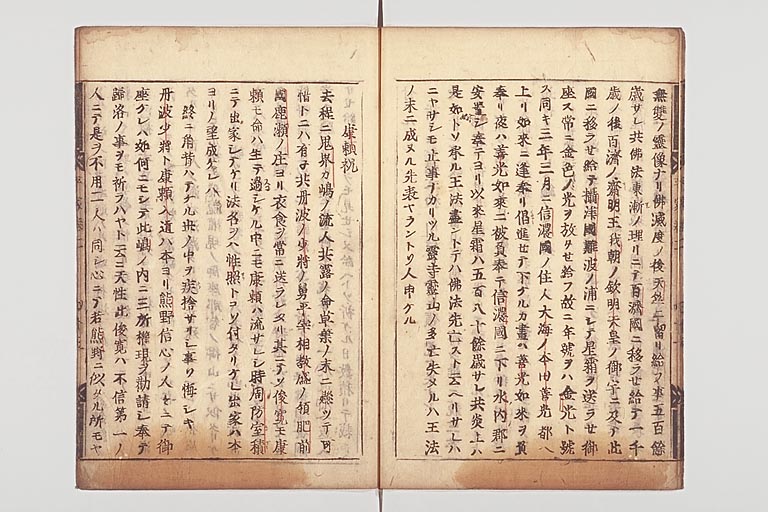 無雙ノ靈像ナリ佛滅度ノ後天竺ニ留リ給フ事五百餘
歳サレ共佛法東漸ノ理リニテ百濟國ニ移ラセ給テ一千
歳ノ後百濟ノ齋明王我朝ノ欽明天皇ノ御宇ニ及テ此
國ニ移ラセ給テ攝津國難波ノ浦ニシテ星霜ヲ送ラセ御
座ス常ニ金色ノ光ヲ放タせ給フ故ニ年號ヲハ金光ト號
ス同キ三年三月ニ信濃國ノ住人大海ノ本田善光都ヘ
上リ如來ニ逢奉リ倡進セテ下ケルカ晝ハ善光如來ヲ負
奉リ夜ハ善光如來ニ被負奉テ信濃國ニ下リ水内郡ニ
安置シ奉テヨリ以來星霜ハ五百八十餘歳サレ共炎上ハ
是如トソ承ル王法盡ントテハ佛法先亡スト云ヘリサレハ
ニヤサシモ止事ナカリツル靈寺靈山ノ多亡失タルハ王法
ノ末ニ成ヌル先表ヤラントソ人申ケル
康頼祝
去程ニ鬼界カ嶋ノ流人共露ノ命草葉ノ末ニ懸ツテ可
惜トニハ有子共丹波ノ少將ノ舅平宰相教盛ノ領肥前
國鹿瀬ノ庄ヨリ衣食ヲ常ニ送ラレタリ其ニテソ俊寛モ康
頼モ命ハ生テ過シケル中ニモ康頼ハ流サレシ時周防室積
ニテ出家シテケリ法名ヲハ性照トコソ付タリケレ出家ハ本
ヨリノ望成ケレハ
終ニ角背ハテケル世中ヲ疾捨サリシ事ソ悔シキ
丹波少將ト康頼入道ハ本ヨリ熊野信心ノ人ニテ御
座ケレハ如何ニモシテ此嶋ノ内ニ三所權現ヲ勸請シ奉テ
歸洛ノ事ヲモ祈ラハヤト云ニ天性此俊寛ハ不信第一ノ
人ニテ是ヲ不用二人ハ同シ心ニテ若熊野ニ似タル所モヤ